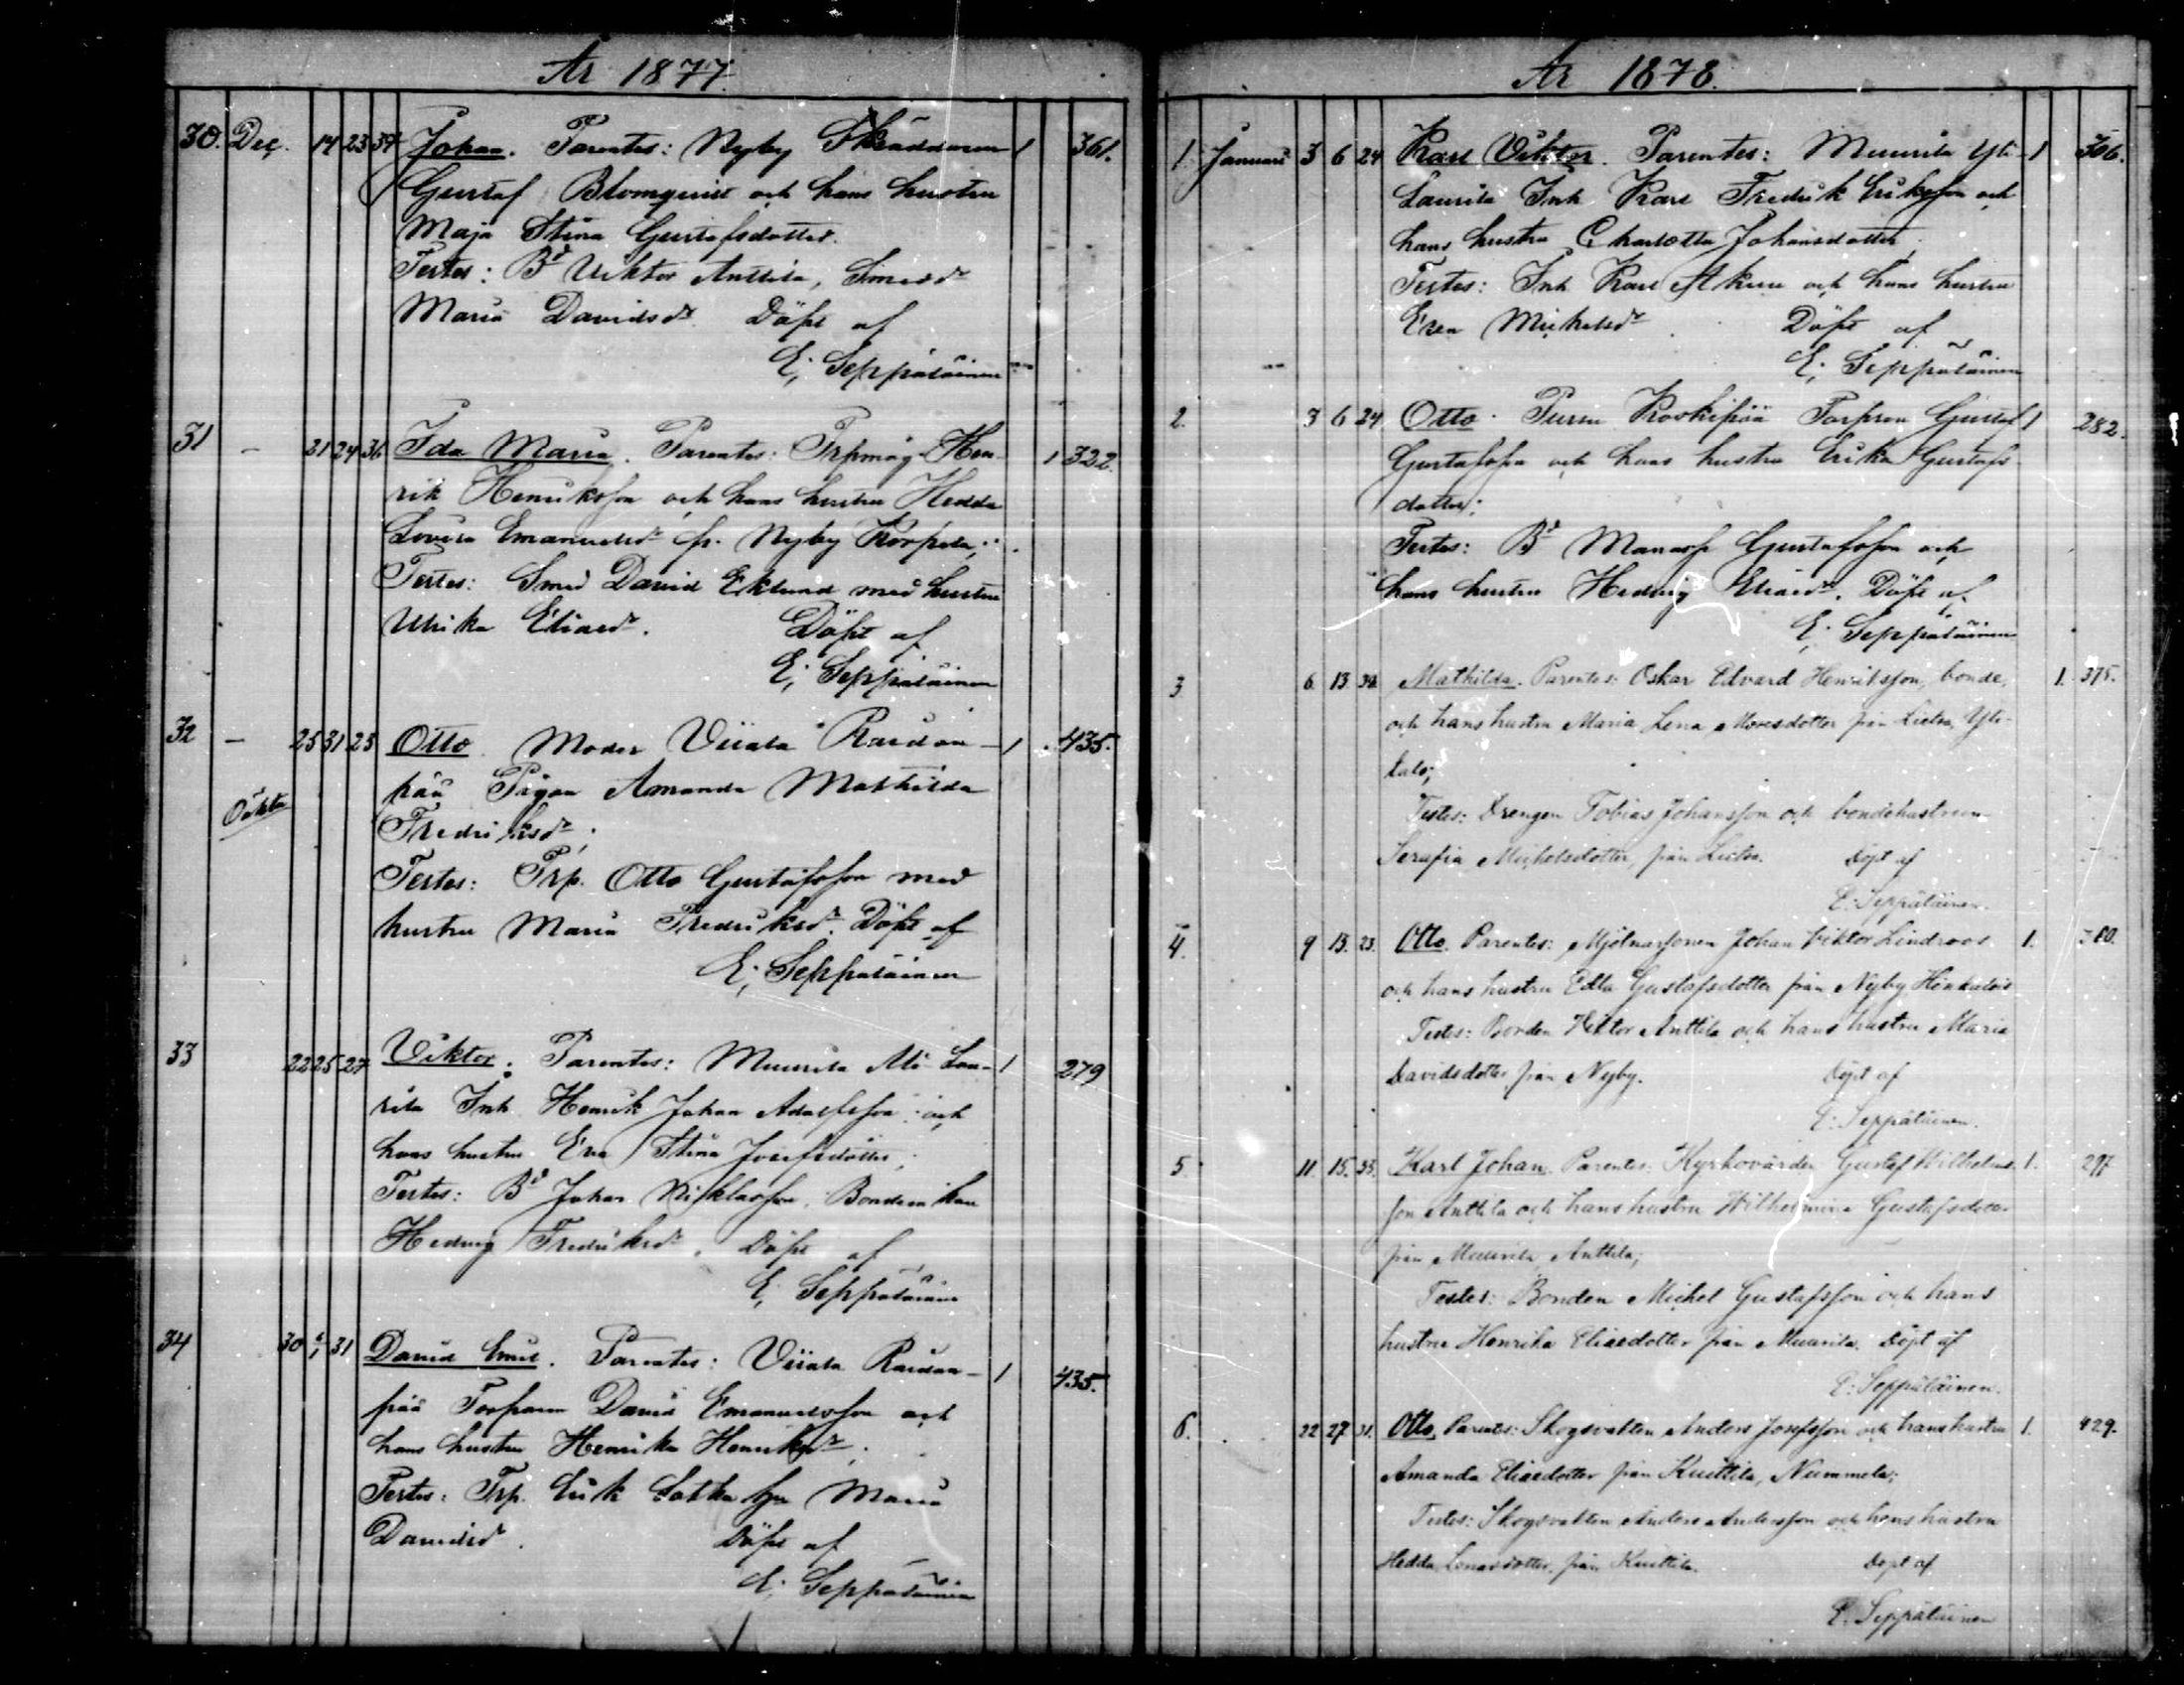 År 1877.
30. Dec. 14 23 39 Johan. Parentes: Nyby Skräddaren 1 361.
Gustaf Blomqvist och hans hustru
Maja Stina Gustafsdotter.
Testes: Bd Viktor Anttila, Smedd
Maria Davidsdr. Döpt af
E; Seppäläinen
31 - 21 24 36 Ida Maria. Parentes: Trpmåg Hen- 1 322.
rik Henriksson och hans hustru Hedda
Lovisa Emanuelsdr fr. Nyby Korpela;
Testes: Smed David Eklund med hustru
Ulrika Eliaedr. Döpt af
E; Seppäläinen
32 - 25 31 23 Otto. Moder Viiala Raudan- 1 435.
pää Pigan Amanda Mathilda
Oäkta
Fredriksdr;
Testes: Trp. Otto Gustafsson med
hustru Maria Fredriksdr. Döpt af
E; Seppäläinen
33 22 25 27 Viktor. Parentes: Muurila Ali Lau- 1 279
rila Inh Henrik Johan Adolfsson och
hans hustru Eva Stina Josefsdotter;
Testes: Bd Johan Niklasson, Bondean
Hedvig Fredriksdr. Döpt af
E; Seppäläinen
34 30 31 David Emil. Parentes: Viiala Raudan- 1 435.
pää Torparen David Emanuelsson och
hans hustru Henrika Henriksdr;
Testes: Trp. Erik Maria
Davidsd. Döpt af
E; Seppäläinen
År 1878.
1. Januari 3 6 24 Karl Viktor. Parentes: Muurila Yli- 1 306.
Laurila Inh Karl Fredrik Eriksson och
hans hustru Charlotta Johansdotter;
Testes: Inh Karl och hans hustru
Eva Mickelsdr Döpt af
E; Seppäläinen
2. 3 6 24 Otto. Torpren Gustaf 1 282.
Gustafsson och hans hustru Erika Gustafs
dotter;
Testes: Bd Manasse Gustafsson och
hans hustru Hedvig Eliaedr. Döpt af
E; Seppäläinen
3 6 13 Mathilda. Parentes: Oskar Edvard Henriksson, bonde, 1. 375.
och hans hustru Maria Lena Mosesdotter från Yli-
talo;
Testes: Drengen Tobias Johansson och bondehustrun
Serafia Michelsdotter, från Döpt af
E: Seppäläinen.
4. 9 13. 23. Otto. Parentes: Mjölnarsonen Johan Viktor Lindroos 1.
och hans hustru Edla Gustafsdotter från Nyby
Testes: Bonden Viktor Anttila och hans hustru Maria
Davidsdotter från Nyby. Döpt af
E: Seppäläinen.
5. 11. 15. 35. Karl Johan. Parentes: Kyrkovärden Gustaf Wilhelms- 1. 297
son Anttila och hans hustru Wilhelmina Gustafsdotter
från Muurila Anttila;
Testes: Bonden Michel Gustafsson och hans
hustru Henrika Eliaedotter från Muurila. Döpt af
E: Seppäläinen.
6. 22 27 31. Otto. Parentes: Skogsvakten Anders Josefsson och hans hustru 1. 429.
Amanda Eliaedotter från Kuittila, Nummela;
Testes: Skogsvakten Anders Andersson och hans hustru
Hedda från Kuittila. Döpt af
E. Seppäläinen